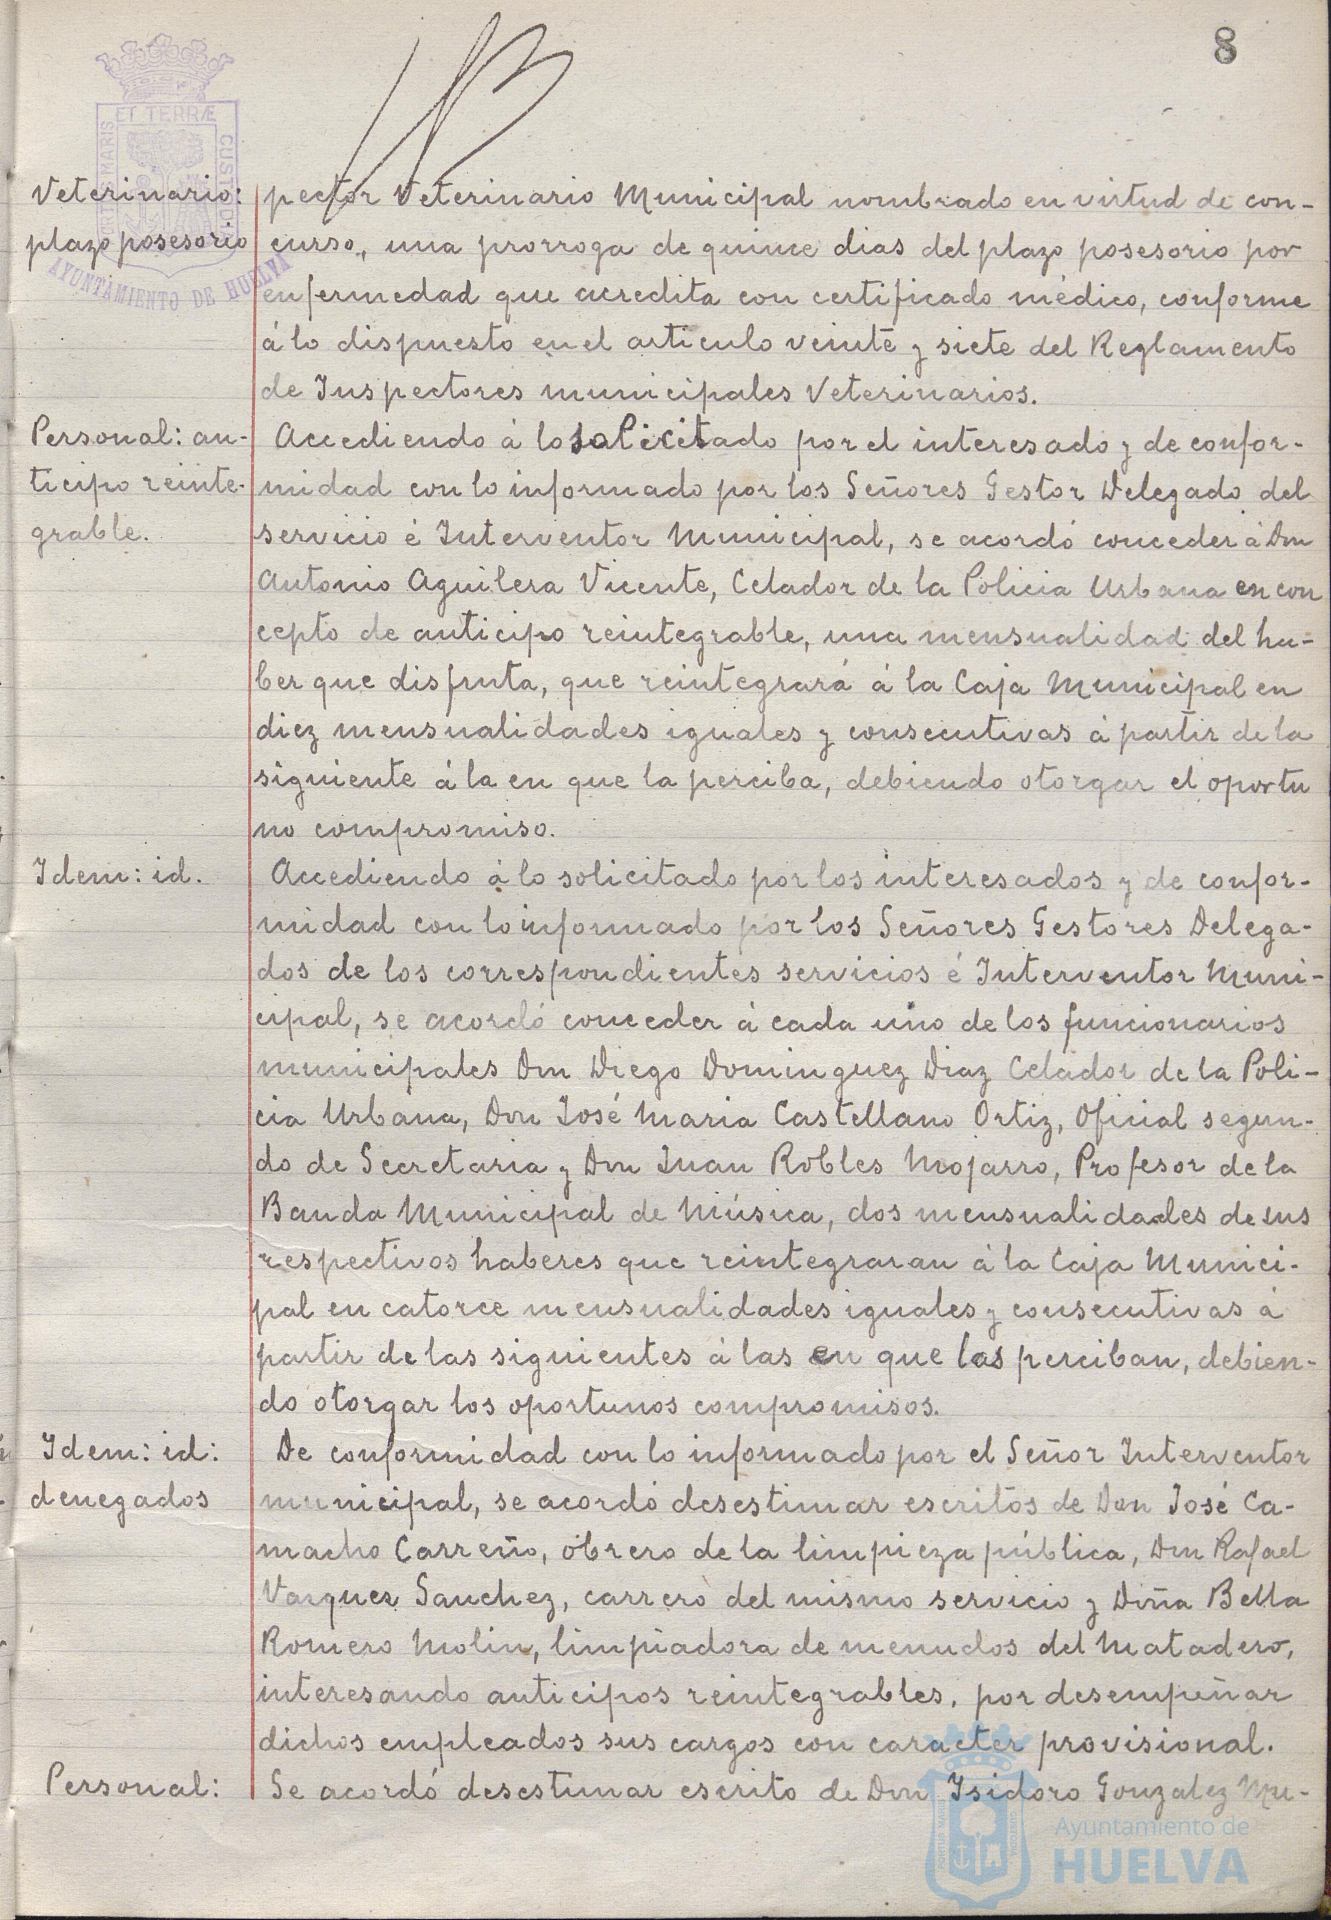 8
ET TERRÆ
CUSTODIA
PORTUS MARIS
AYUNTAMIENTO DE HUELVA
Veterinario:
plazo posesorio
pector Veterinario Municipal nombrado en virtud de con-
curso, una prorroga de quince dias del plazo posesorio por
enfermedad que acredita con certificado médico, conforme
á lo dispuesto en el articulo veinte y siete del Reglamento
de Inspectores municipales Veterinarios.
Personal: an-
ticipo reinte-
grable.
Accediendo á lo solicitado por el interesado y de confor-
midad con lo informado por los Señores Gestor Delegado del
servicio é Interventor Municipal, se acordó conceder á Don
Antonio Aguilera Vicente, Celador de la Policia Urbana en con
cepto de anticipo reintegrable, una mensualidad del ha-
ber que disfruta, que reintegrará á la Caja Municipal en
diez mensualidades iguales y consecutivas á partir de la
siguiente á la en que la perciba, debiendo otorgar el oportu
no compromiso.
Idem: id.
Accediendo á lo solicitado por los interesados y de confor-
midad con lo informado por los Señores Gestores Delega-
dos de los correspondientes servicios é Interventor Muni-
cipal, se acordó conceder á cada uno de los funcionarios
municipales Don Diego Dominguez Diaz Celador de la Poli-
cia Urbana, Don José Maria Castellano Ortiz, Oficial segun-
do de Secretaria y Don Juan Robles Mojarro, Profesor de la
Banda Municipal de Música, dos mensualidades de sus
respectivos haberes que reintegraran á la Caja Munici-
pal en catorce mensualidades iguales y consecutivas á
partir de las siguientes á las en que las perciban, debien-
do otorgar los oportunos compromisos.
Idem: id:
denegados
De conformidad con lo informado por el Señor Interventor
municipal, se acordó desestimar escritos de Don José Ca-
macho Carreño, obrero de la limpieza pública, Don Rafael
Vazquez Sanchez, carrero del mismo servicio y Doña Bella
Romero Molin, limpiadora de menudos del Matadero,
interesando anticipos reintegrables, por desempeñar
dichos empleados sus cargos con caracter provisional.
Personal:
Se acordó desestimar escrito de Don Isidoro Gonzalez Mu-
Ayuntamiento de
HUELVA